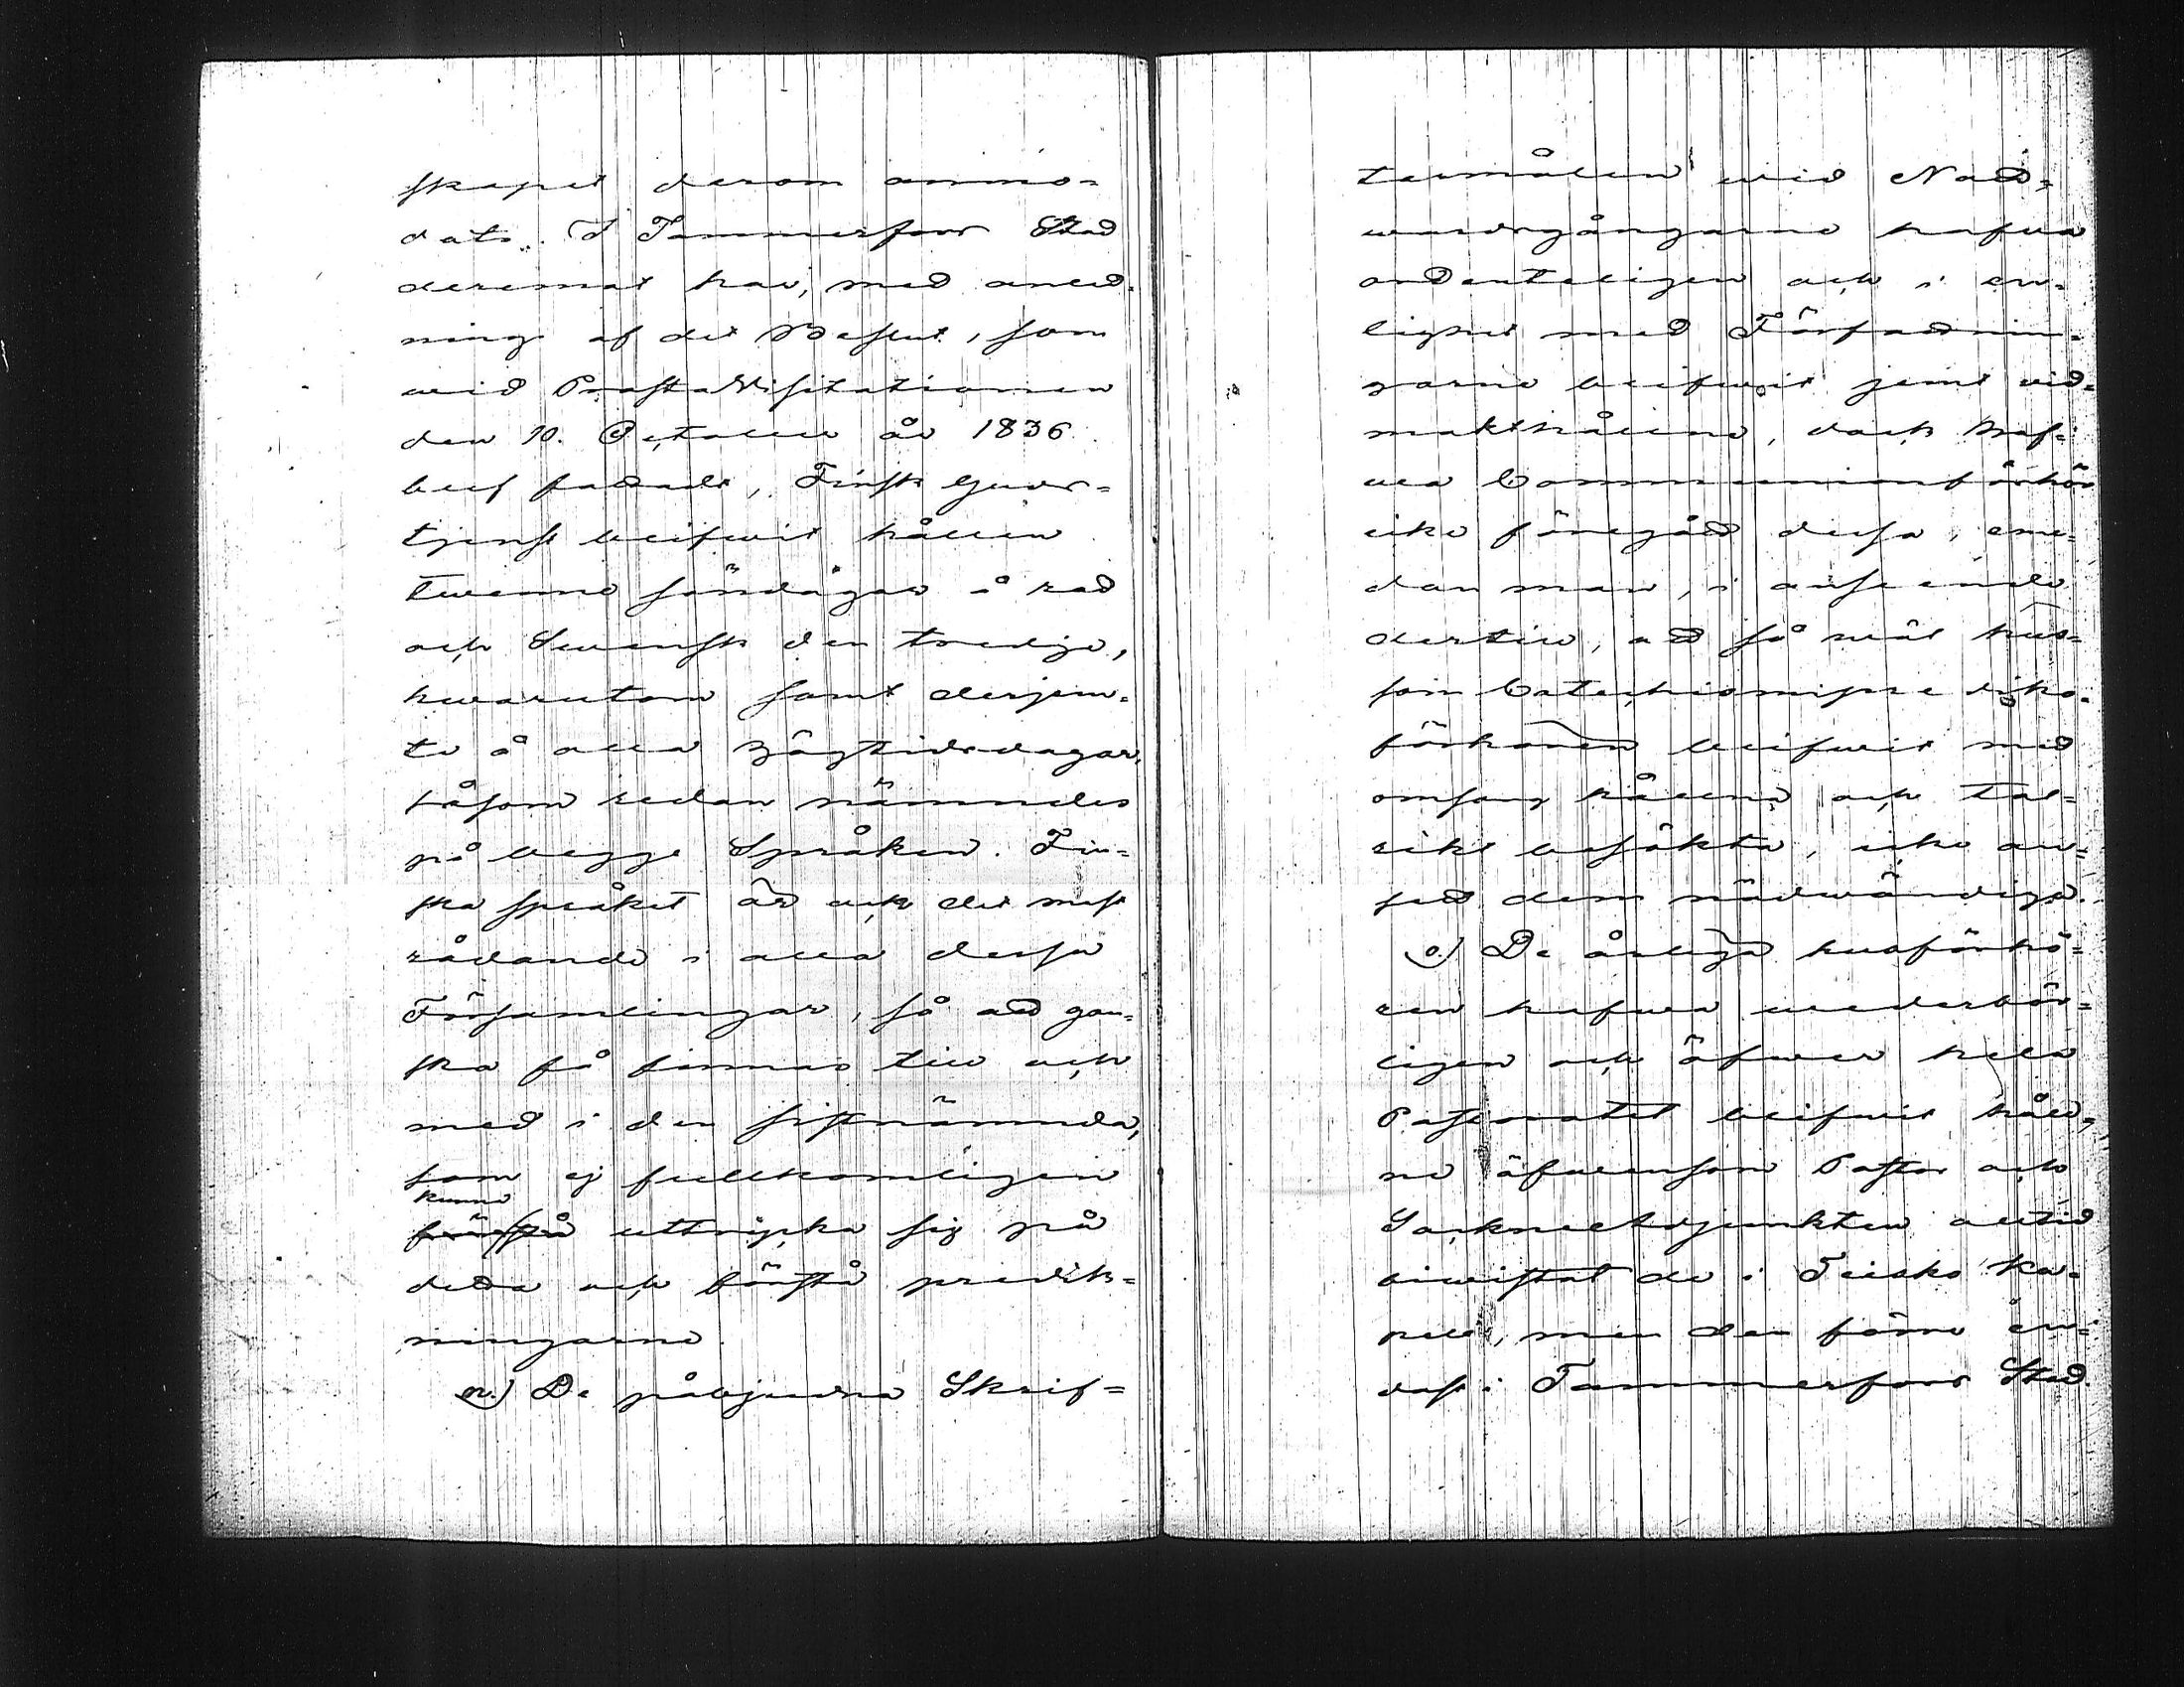 skapet derom anmo=
dats. I Tammerfors Stad
deremot har, med anled=
ning af det Beslut, som
wid Prosta Visitationen
den 10. October år 1836
blef fattadt, Finsk Guds=
tjenst blifwit hållen
twenne söndagar å rad
och Swensk den tredje,
hwarutom samt derjem=
te å alla Högtidsdagar,
såsom redan nämndes
på begge Språken. Fin=
ska språket är ock det mest
rådande i alla dessa
Församlingar, så att gan=
ska få finnas till och
med i den sistnämnda,
som ej fullkomligen
kunna
uttrycka sig på
detta och förstå predik=
ningarne.
n.) De påbjudna Skrif=
termålen wid Natt=
wardsgångarne hafwa
ordenteligen och i en=
lighet med Författnin=
garne blifwit jemt wid=
makthållne, dock haf=
wa Communionförhör
icke föregått dessa, eme=
dan man, i anseende
dertill, att så wäl hus=
som Catechismiprediko=
förhören blifwit med
omsorg hållne och tal=
rikt besökta, icke an=
sett dem nödwändiga.
o.) De årliga husförhö=
ren hafwa wederbör=
ligen och öfwer hela
Pastoratet blifwit håll=
ne äfwensom Pastor och
Sockne Adjunkten alltid
biwistat de i Teisko Ka=
pell, men den förre en=
dast i Tammerfors Stad.